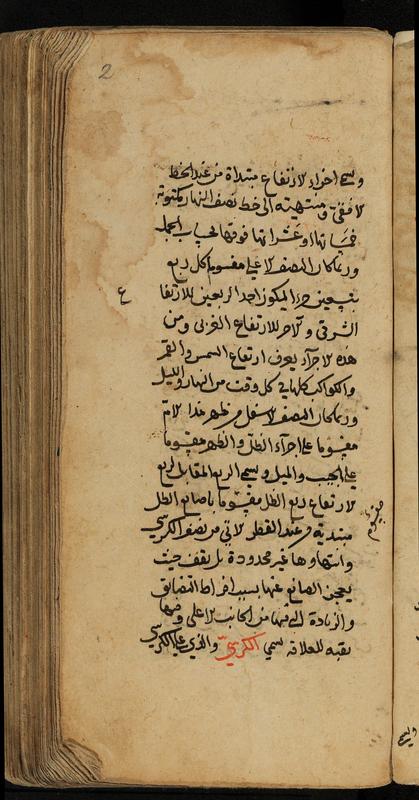 2
وسمي اجزاء الارتفاع مبتداة من عند الخط
الافقي ومنتهية الى خط نصف النهار مكتوبة
خمساتها او عشراتها فوقها بحساب الجمل
وربما كان النصف الاعلى مقسوم كل ربع
بتسعين جزء ليكون احد الربعين للارتفاع
ع
الشرقي والاخر للارتفاع الغربي ومن
هذه الاجزاء يعرف ارتفاع الشمس والقمر
والكواكب كلها في كل وقت من النهار والليل
وربما كان النصف الاسفل من ظهر هذا الام
مقسوما على اجزاء الظل والظهر مقسوما
على الجيب والميل وسمي الربع المقابل لربع
الارتفاع ربع الظل مقسوما باصابع الظل
مقسوم
مبتدية من عند القطر الاتي من نصف الكرسي
وانتهاوها غير محدودة بل يقف حيث
يعجز الصانع عنها بسبب افراط التضايق
والزيادة التي فيها من الجانب الاعلى وفيها
ثقبه للعلاقه سمي الكرسي والذي على الكرسي